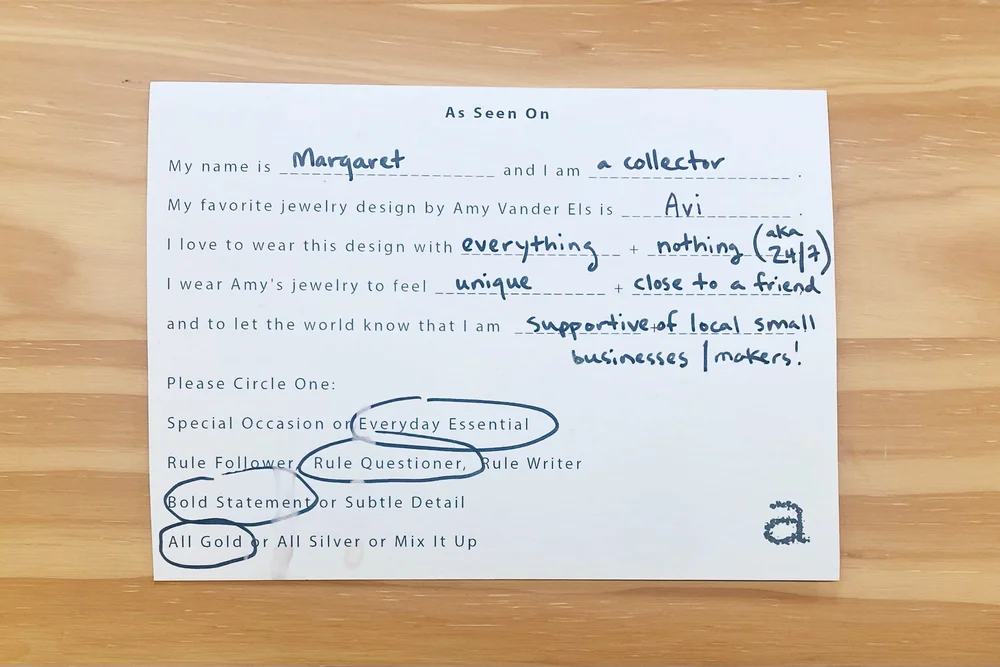 As Seen On
My name is Margaret and I am a collector.
My favorite jewelry design by Amy Vander Els is Avi.
I love to wear this design with everything + nothing (aka 24/7)
I wear Amy's jewelry to feel unique + close to a friend
and to let the world know that I am supportive of local small
businesses / makers!
Please Circle One:
Special Occasion or Everyday Essential
Rule Follower, Rule Questioner, Rule Writer
Bold Statement or Subtle Detail
All Gold or All Silver or Mix It Up
a